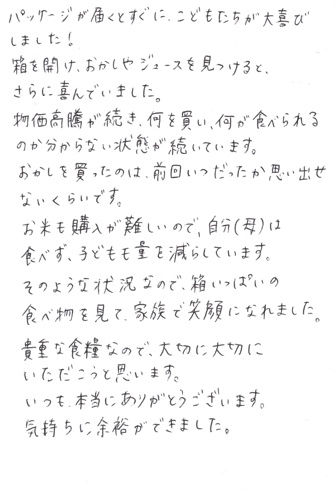 パッケージが届くとすぐに、こどもたちが大喜び
しました！
箱を開け、おかしやジュースを見つけると、
さらに喜んでいました。
物価高騰が続き、何を買い、何が食べられる
のか分からない状態が続いています。
おかしを買ったのは、前回いつだったか思い出せ
ないくらいです。
お米も購入が難しいので、自分(母)は
食べず、子どもも量を減らしています。
そのような状況なので、箱いっぱいの
食べ物を見て、家族で笑顔になれました。
貴重な食糧なので、大切に大切に
いただこうと思います。
いつも、本当にありがとうございます。
気持ちに余裕ができました。